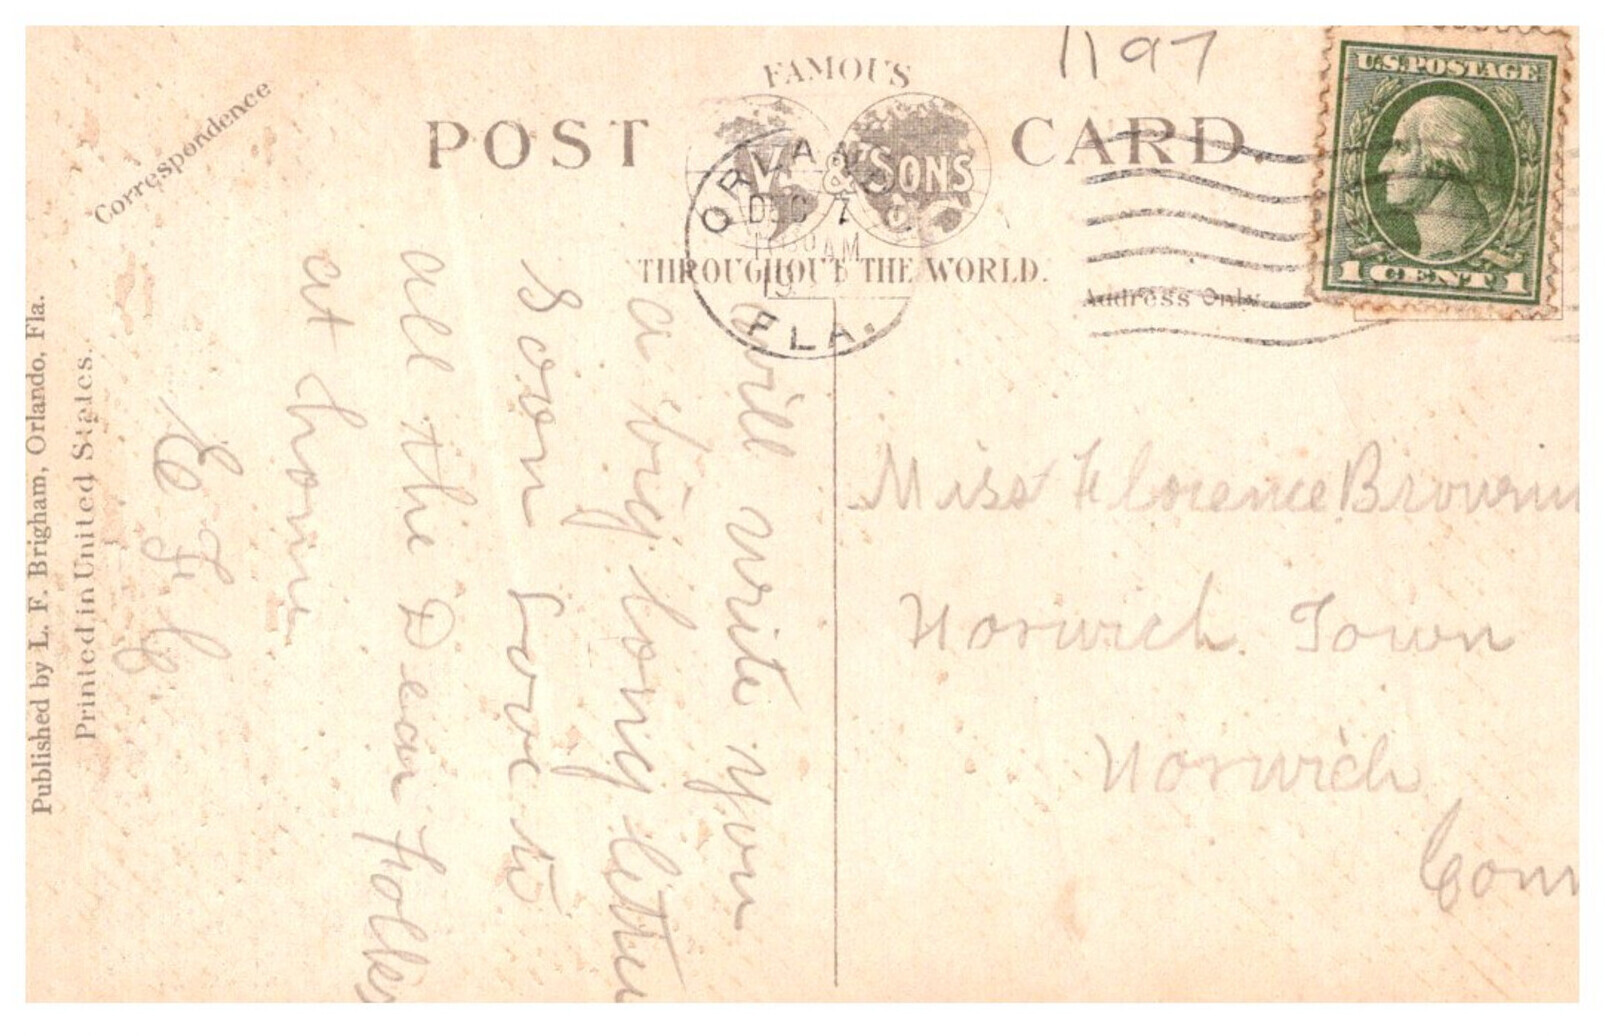 1197
U.S. POSTAGE
1 CENT 1
FAMOUS
POST CARD.
V. & SONS
THROUGHOUT THE WORLD.
DEC 7
AM
FLA.
Correspondence
Address Only
will write you
a big long letter
soon Love to
all the Dear folks
at home
E F C
Miss Florence
Norwich Town
Norwich
Conn
Published by L. F. Brigham, Orlando, Fla.
Printed in United States.